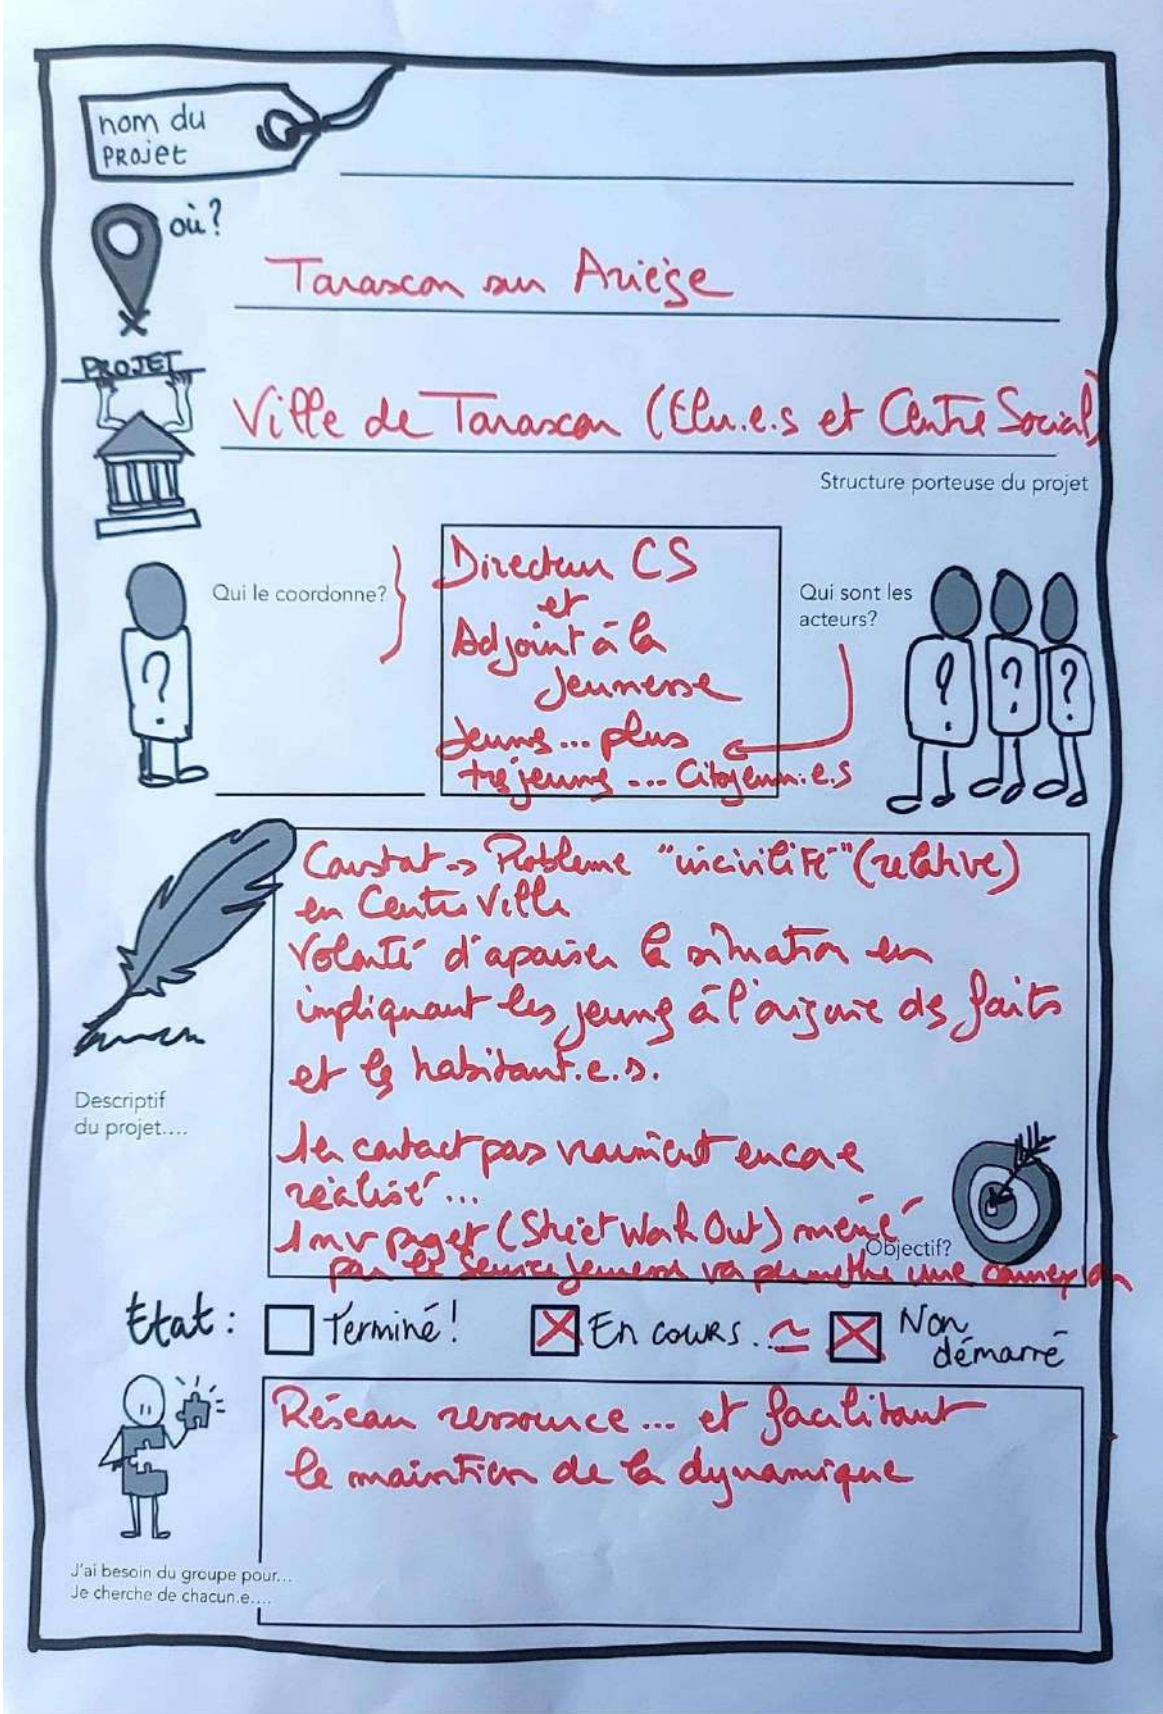 nom du
PROJet
où?
Tarascon sur Ariège
PROJET
Ville de Tarascon (Elu.e.s et Centre Social)
Structure porteuse du projet
Qui le coordonne?
Directeur CS
et
Adjoint à la
Jeunesse
Jeunes... plus
très jeunes ... Citoyenn.e.s
Qui sont les
acteurs?
Constat -> Problème "incivilité" (relative)
en Centre Ville
Volonté d'apaiser la situation en
impliquant les jeunes à l'origine des faits
et les habitant.e.s.
1er contact pas vraiment encore
réalisé...
1 nv projet (Street Work Out) mené
par le Service Jeunesse va permettre une connexion
Descriptif
du projet....
Objectif?
Etat :
Terminé!
En cours.. ≃
Non
démarré
Réseau ressource... et facilitant
le maintien de la dynamique
J'ai besoin du groupe pour...
Je cherche de chacun.e....